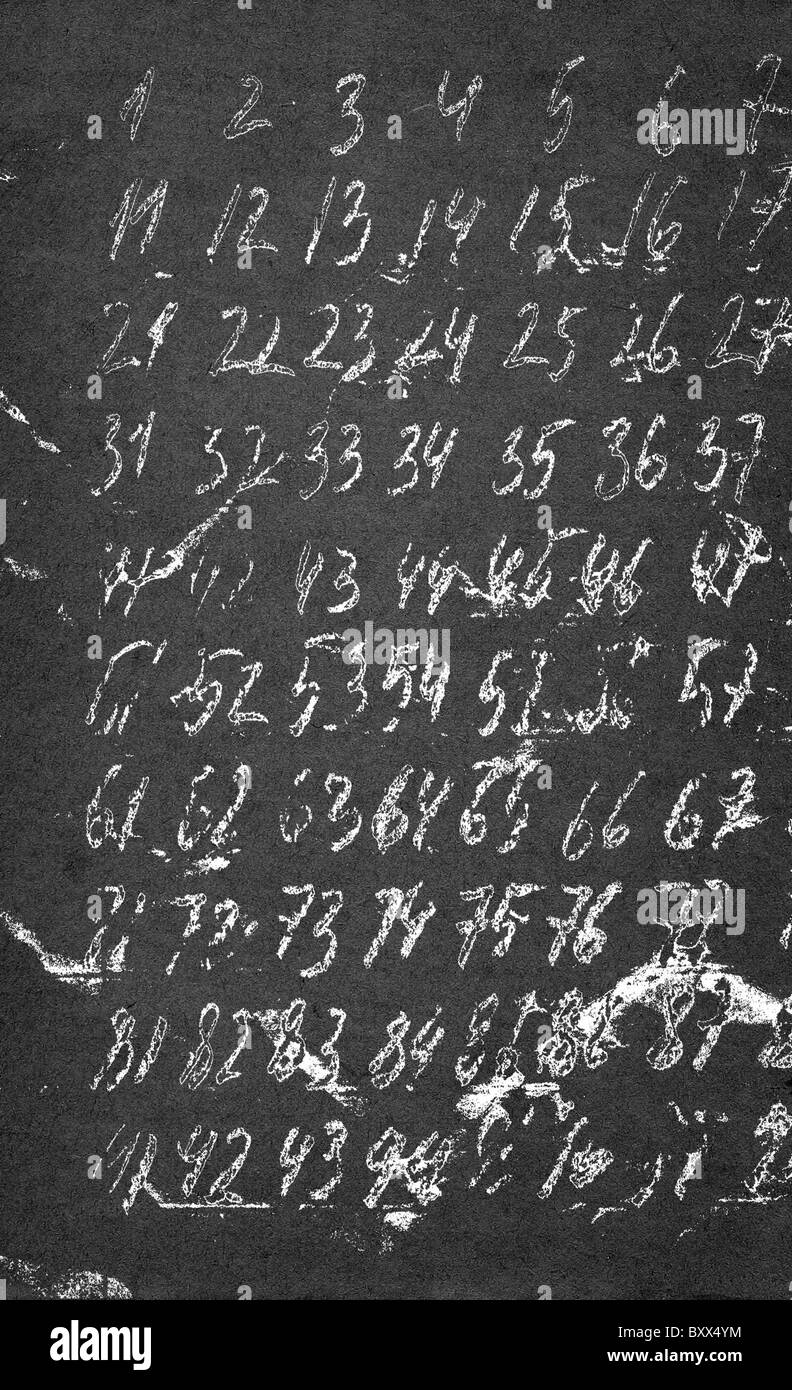 1 2 3 4 5 6 7
11 12 13 14 15 16 17
21 22 23 24 25 26 27
31 32 33 34 35 36 37
41 42 43 44 45 46 47
51 52 53 54 57
61 62 63 64 65 66 67
71 72 73 74 75 76 77
81 82 83 84 85 86 87
91 92 93 94
alamy
Image ID: BXX4YM
www.alamy.com